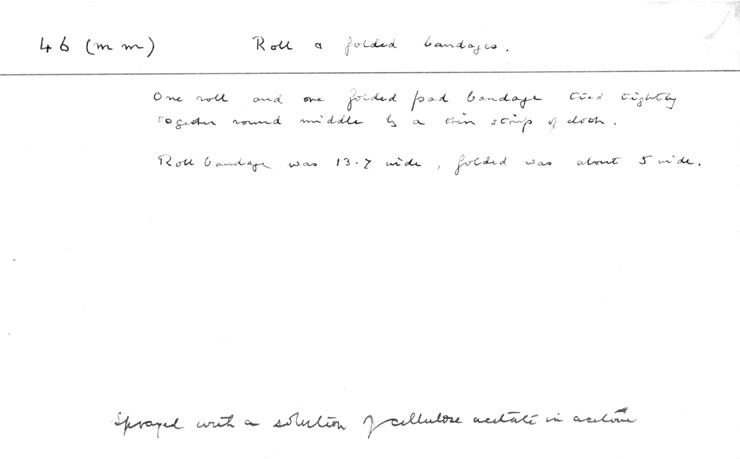 46 (mm) Roll & folded bandages.
One roll and one folded pad bandage tied tightly
together round middle by a thin strip of cloth.
Roll bandage was 13.7 wide, folded was about 5 wide.
Sprayed with a solution of cellulose acetate in acetone